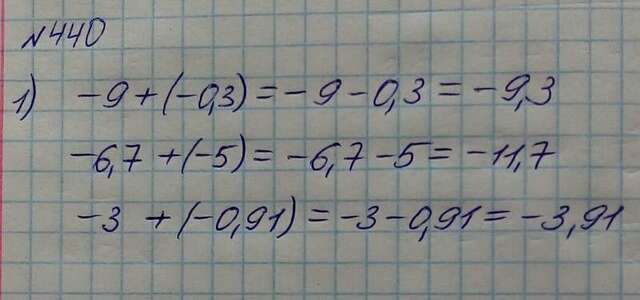 №440
1) -9+(-0,3)=-9-0,3=-9,3
-6,7+(-5)=-6,7-5=-11,7
-3 +(-0,91)=-3-0,91=-3,91